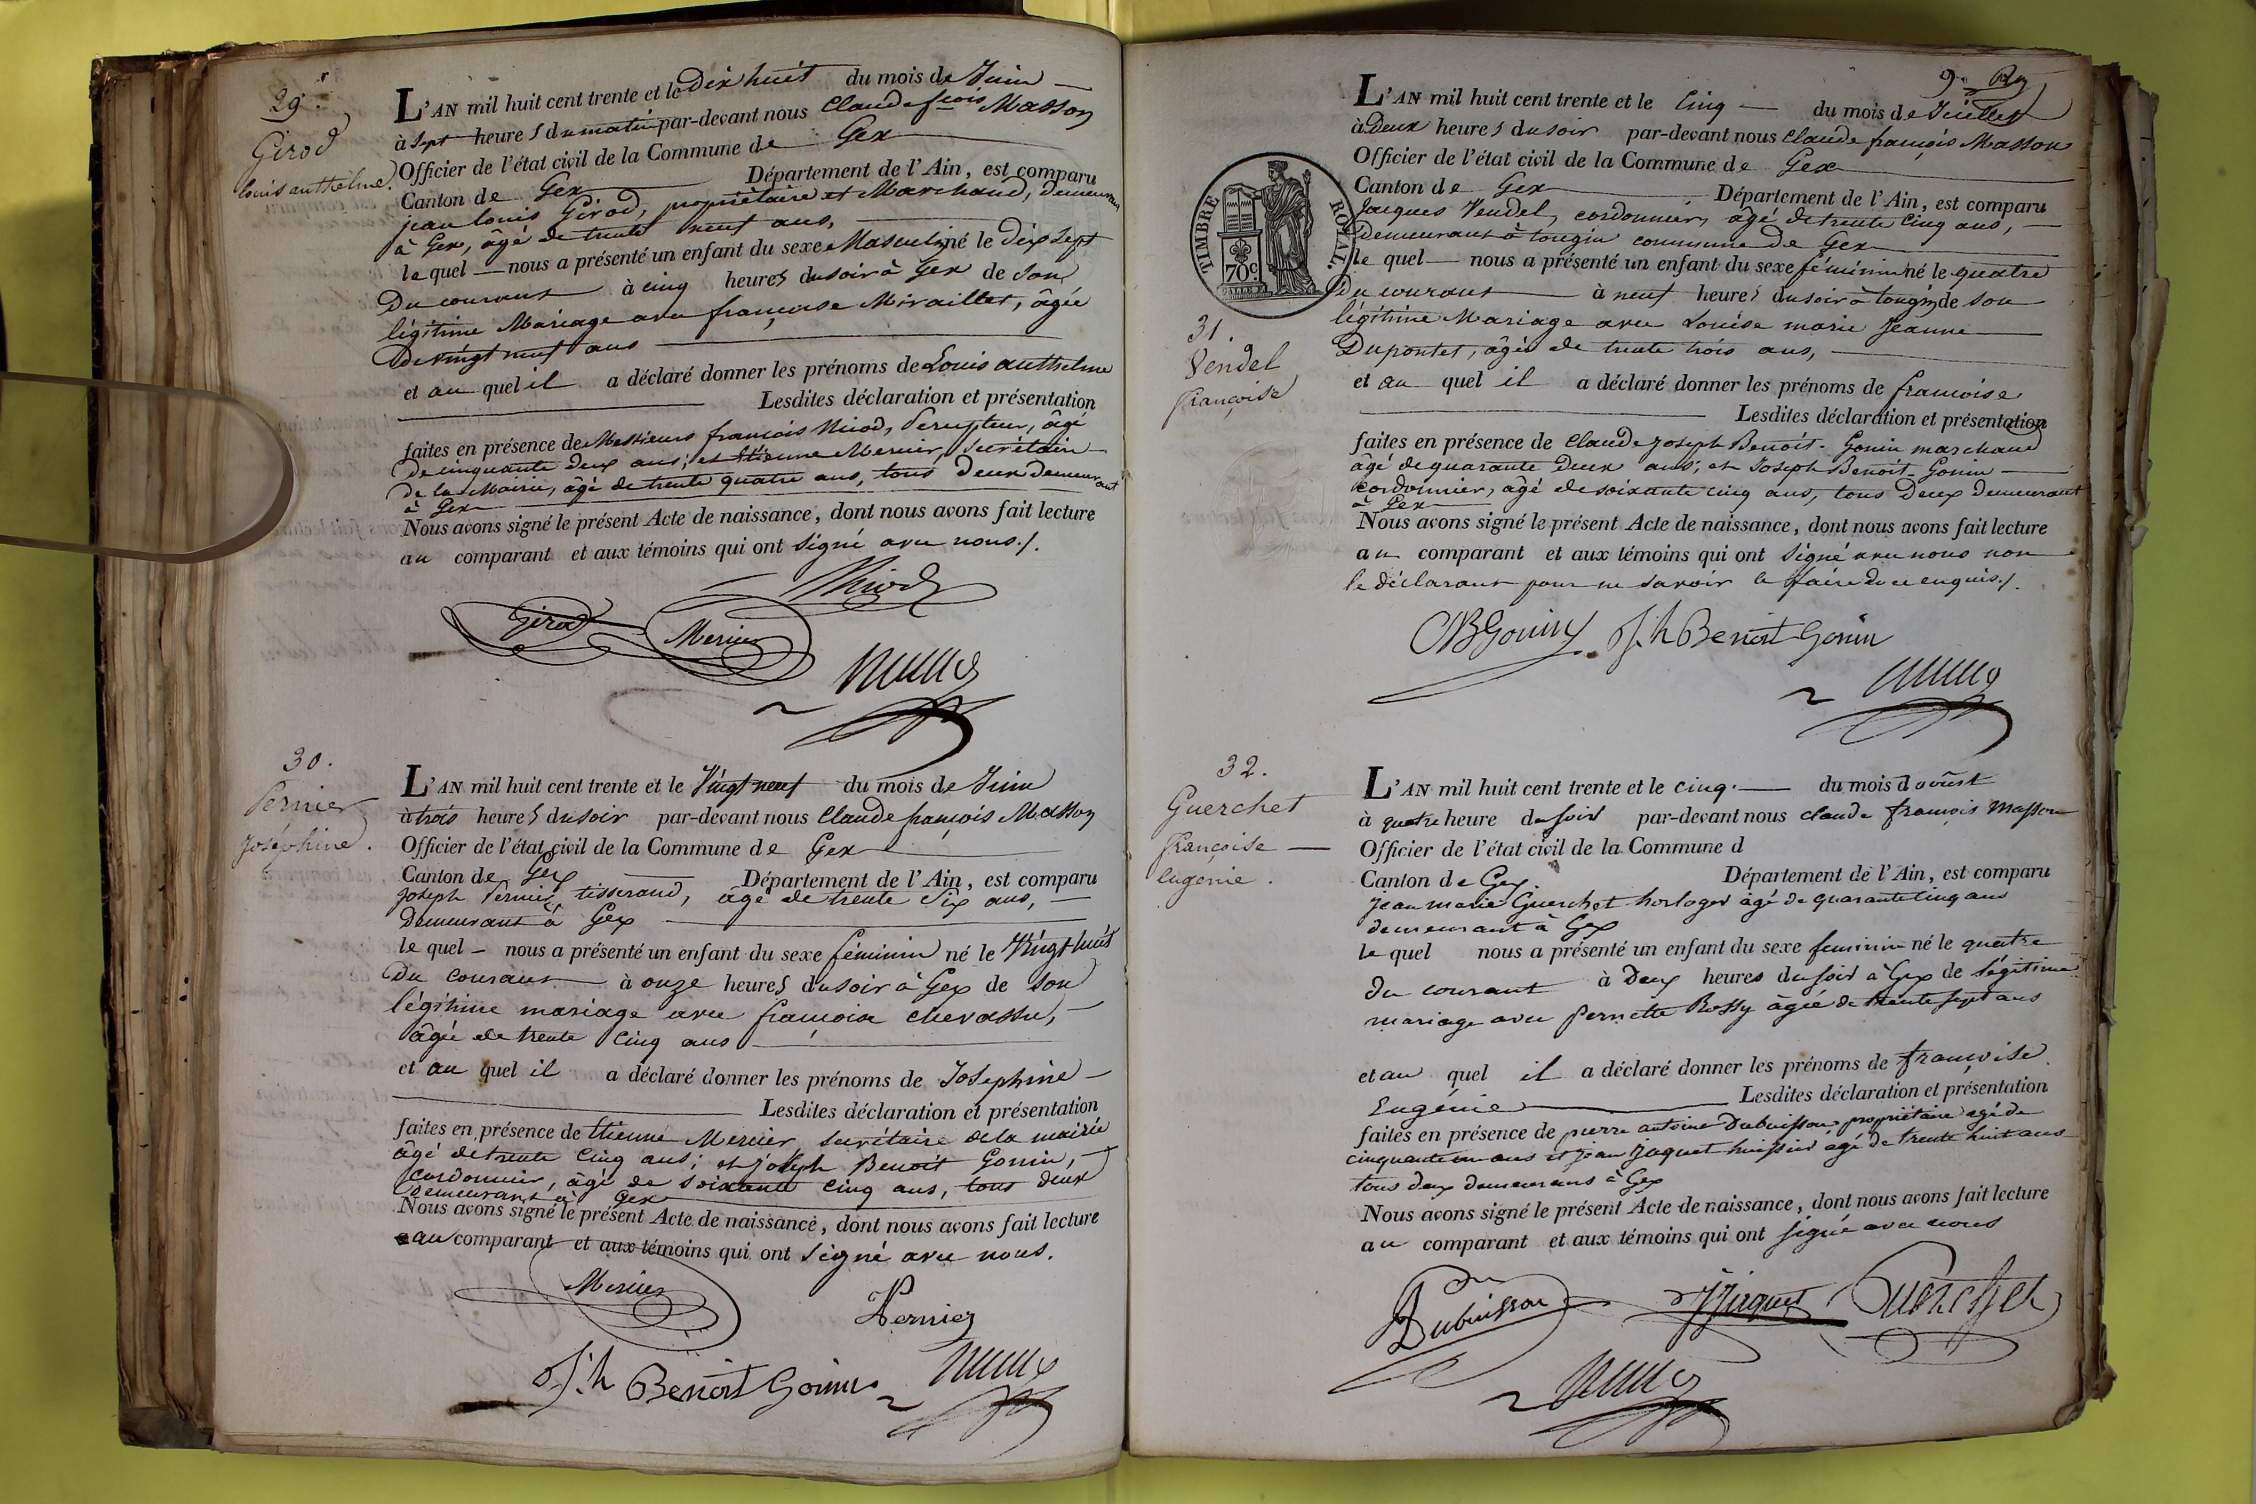 29.
Girod
louis anthelme.
L'AN mil huit cent trente et le Dix huit du mois de Juin
à Sept heures du matin par-devant nous Claude fçois Masson
Officier de l'état civil de la Commune de Gex
Canton de Gex Département de l'Ain, est comparu
jean louis Girod, propriétaire et Marchand, demeurant
à Gex, âgé de trente neuf ans,
le quel nous a présenté un enfant du sexe Masculin né le dix sept
Du courant à cinq heures du soir à Gex de son
légitime Mariage avec françoise Miraillet, âgée
de vingt neuf ans
et au quel il a déclaré donner les prénoms de Louis anthelme
Lesdites déclaration et présentation
faites en présence de Messieurs françois Nicod, Percepteur, âgé
de cinquante deux ans; et Etienne Mercier, Secrétaire
de la Mairie, âgé de trente quatre ans, tous deux demeurant
à Gex
Nous avons signé le présent Acte de naissance, dont nous avons fait lecture
au comparant et aux témoins qui ont signé avec nous./.
Nicod
Girod Mercier
30.
Pernier
Joséphine.
L'AN mil huit cent trente et le Vingt neuf du mois de Juin
à trois heures du soir par-devant nous Claude françois Masson
Officier de l'état civil de la Commune de Gex
Canton de Gex Département de l'Ain, est comparu
Joseph Pernier, tisserand, âgé de trente Six ans,
Demeurant à Gex
le quel nous a présenté un enfant du sexe féminin né le Vingt huit
Du courant à onze heures du soir à Gex de son
légitime mariage avec françoise Chevassu,
âgée de trente Cinq ans
et au quel il a déclaré donner les prénoms de Joséphine
Lesdites déclaration et présentation
faites en présence de Etienne Mercier, secrétaire de la mairie
âgé de trente Cinq ans; et joseph Benoit Gonin,
Cordonnier, âgé de Soixante Cinq ans, tous deux
demeurant à Gex
Nous avons signé le présent Acte de naissance, dont nous avons fait lecture
au comparant et aux témoins qui ont signé avec nous.
Mercier Pernier
Jh Benoit Gonin
9
TIMBRE ROYAL.
70c.
31.
Vendel
françoise
L'AN mil huit cent trente et le Cinq du mois de Juillet
à Deux heures du soir par-devant nous Claude françois Masson
Officier de l'état civil de la Commune de Gex
Canton de Gex Département de l'Ain, est comparu
Jacques Vendel, cordonnier, âgé de trente Cinq ans,
Demeurant à tougin commune de Gex
le quel nous a présenté un enfant du sexe féminin né le quatre
Du courant à neuf heures du soir à tougin de son
légitime Mariage avec Louise marie Jeanne
Dupontet, âgée de trente trois ans,
et au quel il a déclaré donner les prénoms de françoise
Lesdites déclaration et présentation
faites en présence de Claude Joseph Benoit-Gonin marchand
âgé de quarante Deux ans; et Joseph Benoit-Gonin
Cordonnier, âgé de soixante cinq ans, tous Deux demeurant
à Gex
Nous avons signé le présent Acte de naissance, dont nous avons fait lecture
au comparant et aux témoins qui ont signé avec nous non
le déclarant pour ne savoir le faire de ce enquis./.
CJBGonin Jh Benoit Gonin
32.
Guerchet
françoise
Eugénie.
L'AN mil huit cent trente et le cinq du mois d août
à quatre heure du soir par-devant nous claude françois Masson
Officier de l'état civil de la Commune d
Canton de Gex Département de l'Ain, est comparu
Jean marie Guerchet horloger âgé de quarante cinq ans
demeurant à Gex
le quel nous a présenté un enfant du sexe feminin né le quatre
du courant à Deux heures du soir à Gex de légitime
mariage avec pernette Rossy âgée de trente sept ans
et au quel il a déclaré donner les prénoms de françoise
Eugénie Lesdites déclaration et présentation
faites en présence de pierre antoine Dubuisson propriétaire agé de
cinquante un ans et jean Jaquet huissier âgé de trente huit ans
tous deux demeurans à Gex
Nous avons signé le présent Acte de naissance, dont nous avons fait lecture
au comparant et aux témoins qui ont signé avec nous
Dubuisson JJaquet Guerchet